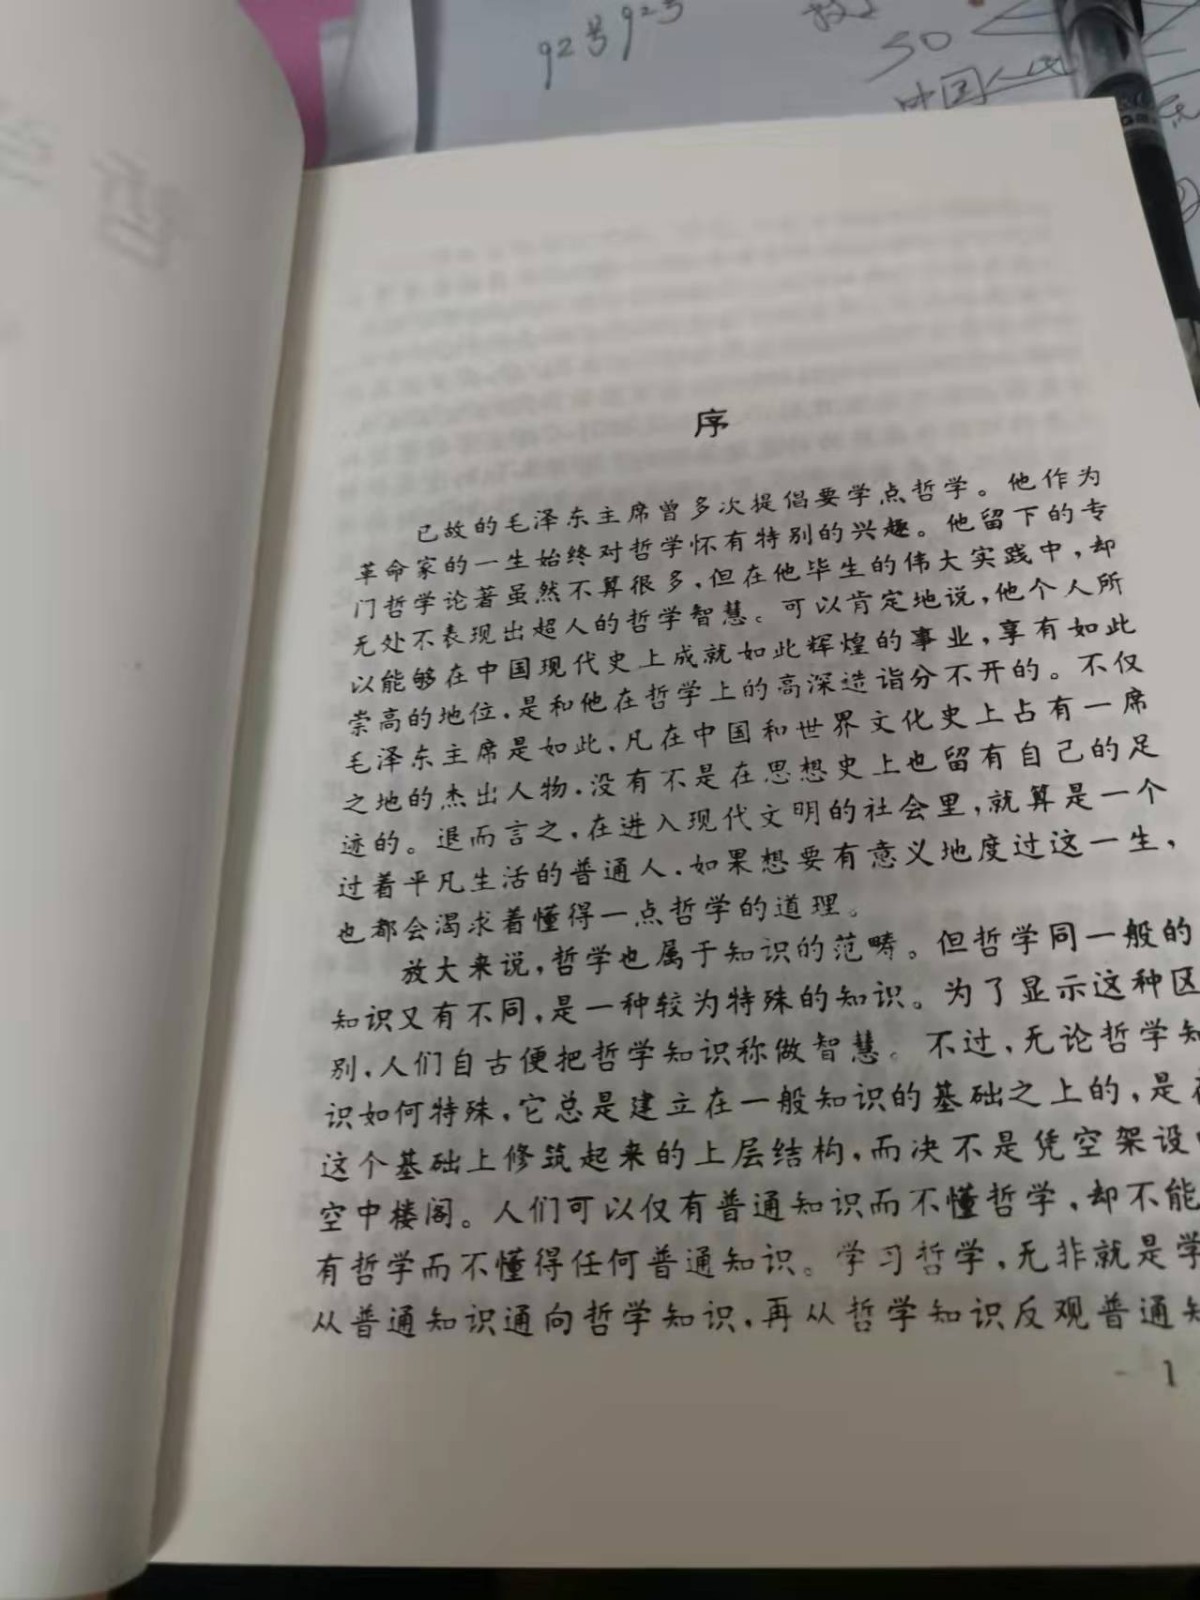 92号 92号
50
中国人民
序
已故的毛泽东主席曾多次提倡要学点哲学。他作为
革命家的一生始终对哲学怀有特别的兴趣。他留下的专
门哲学论著虽然不算很多，但在他毕生的伟大实践中，却
无处不表现出超人的哲学智慧。可以肯定地说，他个人所
以能够在中国现代史上成就如此辉煌的事业，享有如此
崇高的地位，是和他在哲学上的高深造诣分不开的。不仅
毛泽东主席是如此，凡在中国和世界文化史上占有一席
之地的杰出人物，没有不是在思想史上也留有自己的足
迹的。退而言之，在进入现代文明的社会里，就算是一个
过着平凡生活的普通人，如果想要有意义地度过这一生，
也都会渴求着懂得一点哲学的道理。
放大来说，哲学也属于知识的范畴。但哲学同一般的
知识又有不同，是一种较为特殊的知识。为了显示这种区
别，人们自古便把哲学知识称做智慧。不过，无论哲学知
识如何特殊，它总是建立在一般知识的基础之上的，是在
这个基础上修筑起来的上层结构，而决不是凭空架设
空中楼阁。人们可以仅有普通知识而不懂哲学，却不能
有哲学而不懂得任何普通知识。学习哲学，无非就是学
从普通知识通向哲学知识，再从哲学知识反观普通知
1